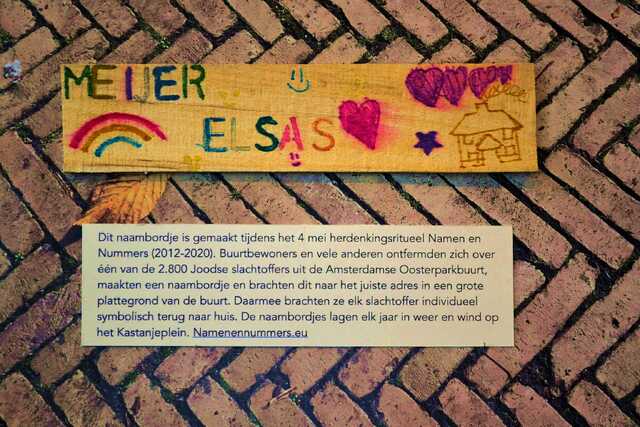 MEIJER
ELSAS
Dit naambordje is gemaakt tijdens het 4 mei herdenkingsritueel Namen en
Nummers (2012-2020). Buurtbewoners en vele anderen ontfermden zich over
één van de 2.800 Joodse slachtoffers uit de Amsterdamse Oosterparkbuurt,
maakten een naambordje en brachten dit naar het juiste adres in een grote
plattegrond van de buurt. Daarmee brachten ze elk slachtoffer individueel
symbolisch terug naar huis. De naambordjes lagen elk jaar in weer en wind op
het Kastanjeplein. Namenennummers.eu